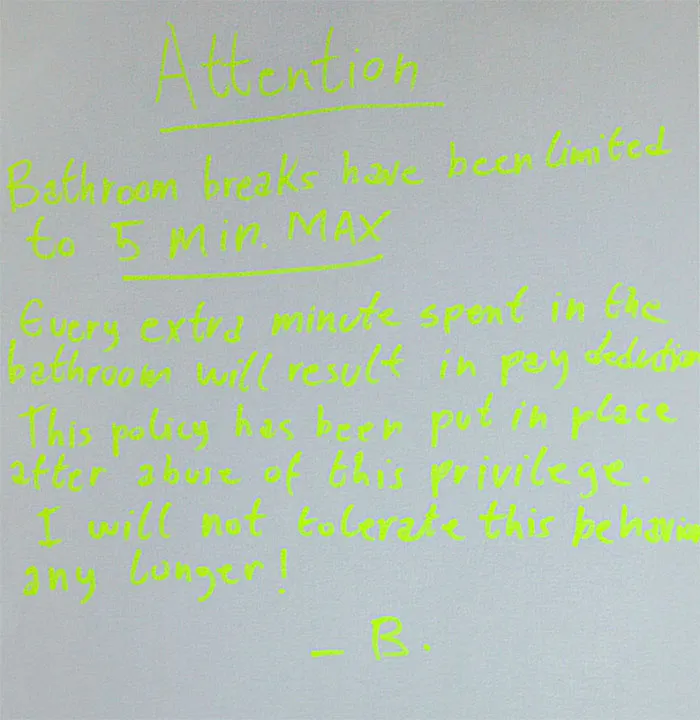 Attention
Bathroom breaks have been limited
to 5 Min. MAX
Every extra minute spent in the
bathroom will result in pay deduction
This policy has been put in place
after abuse of this privilege.
I will not tolerate this behavior
any longer!
– B.